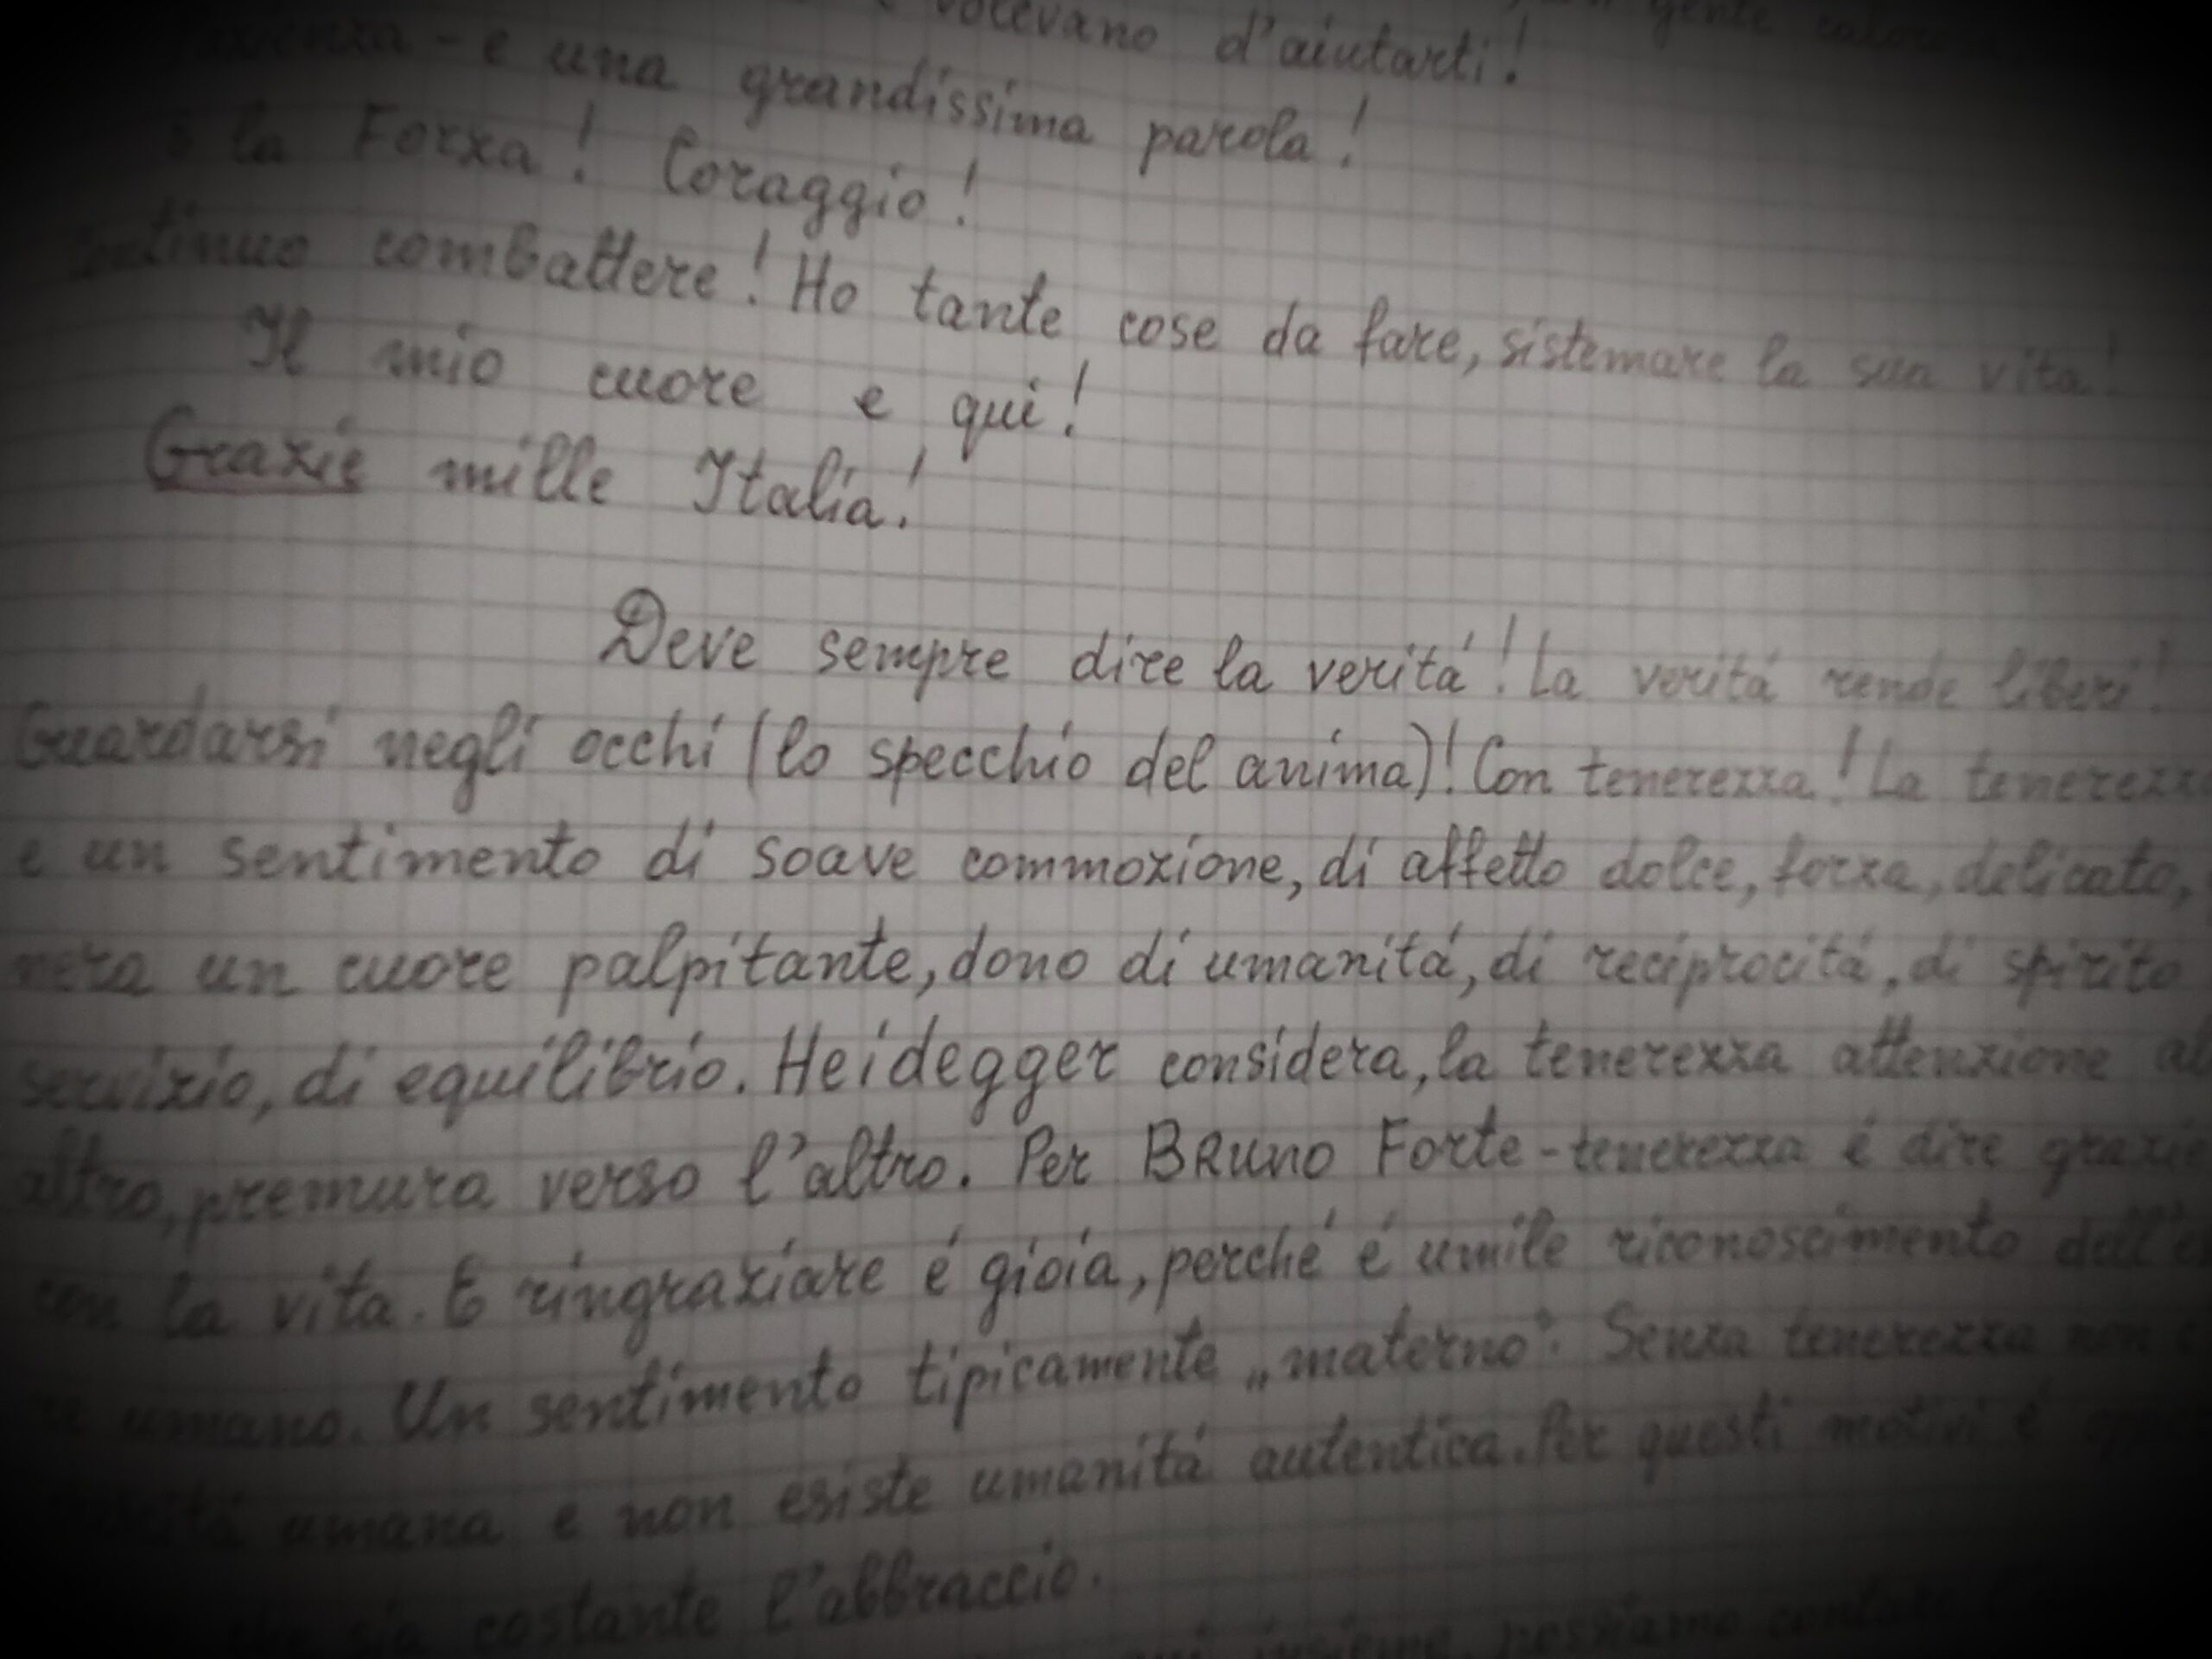 volevano d'aiutarti! gente
- e una grandissima parola!
la Forza! Coraggio!
combattere! Ho tante cose da fare, sistemare la sua vita!
Il mio cuore e qui!
Grazie mille Italia!
Deve sempre dire la veritá! La veritá rende liberi!
Guardarsi negli occhi (lo specchio del anima)! Con tenerezza! La tenerezza
e un sentimento di soave commozione, di affetto dolce, forza, delicato,
un cuore palpitante, dono di umanitá, di reciprocitá, di spirito
servizio, di equilibrio. Heidegger considera, la tenerezza attenzione al
altro, premura verso l'altro. Per BRuno Forte - tenerezza é dire grazie
con la vita. E ringraziare é gioia, perché é umile riconoscimento dall'
umano. Un sentimento tipicamente „materno". Senza tenerezza non
umana e non esiste umanitá autentica. Per questi motivi é
che sia costante l'abbraccio.
insieme, possiamo